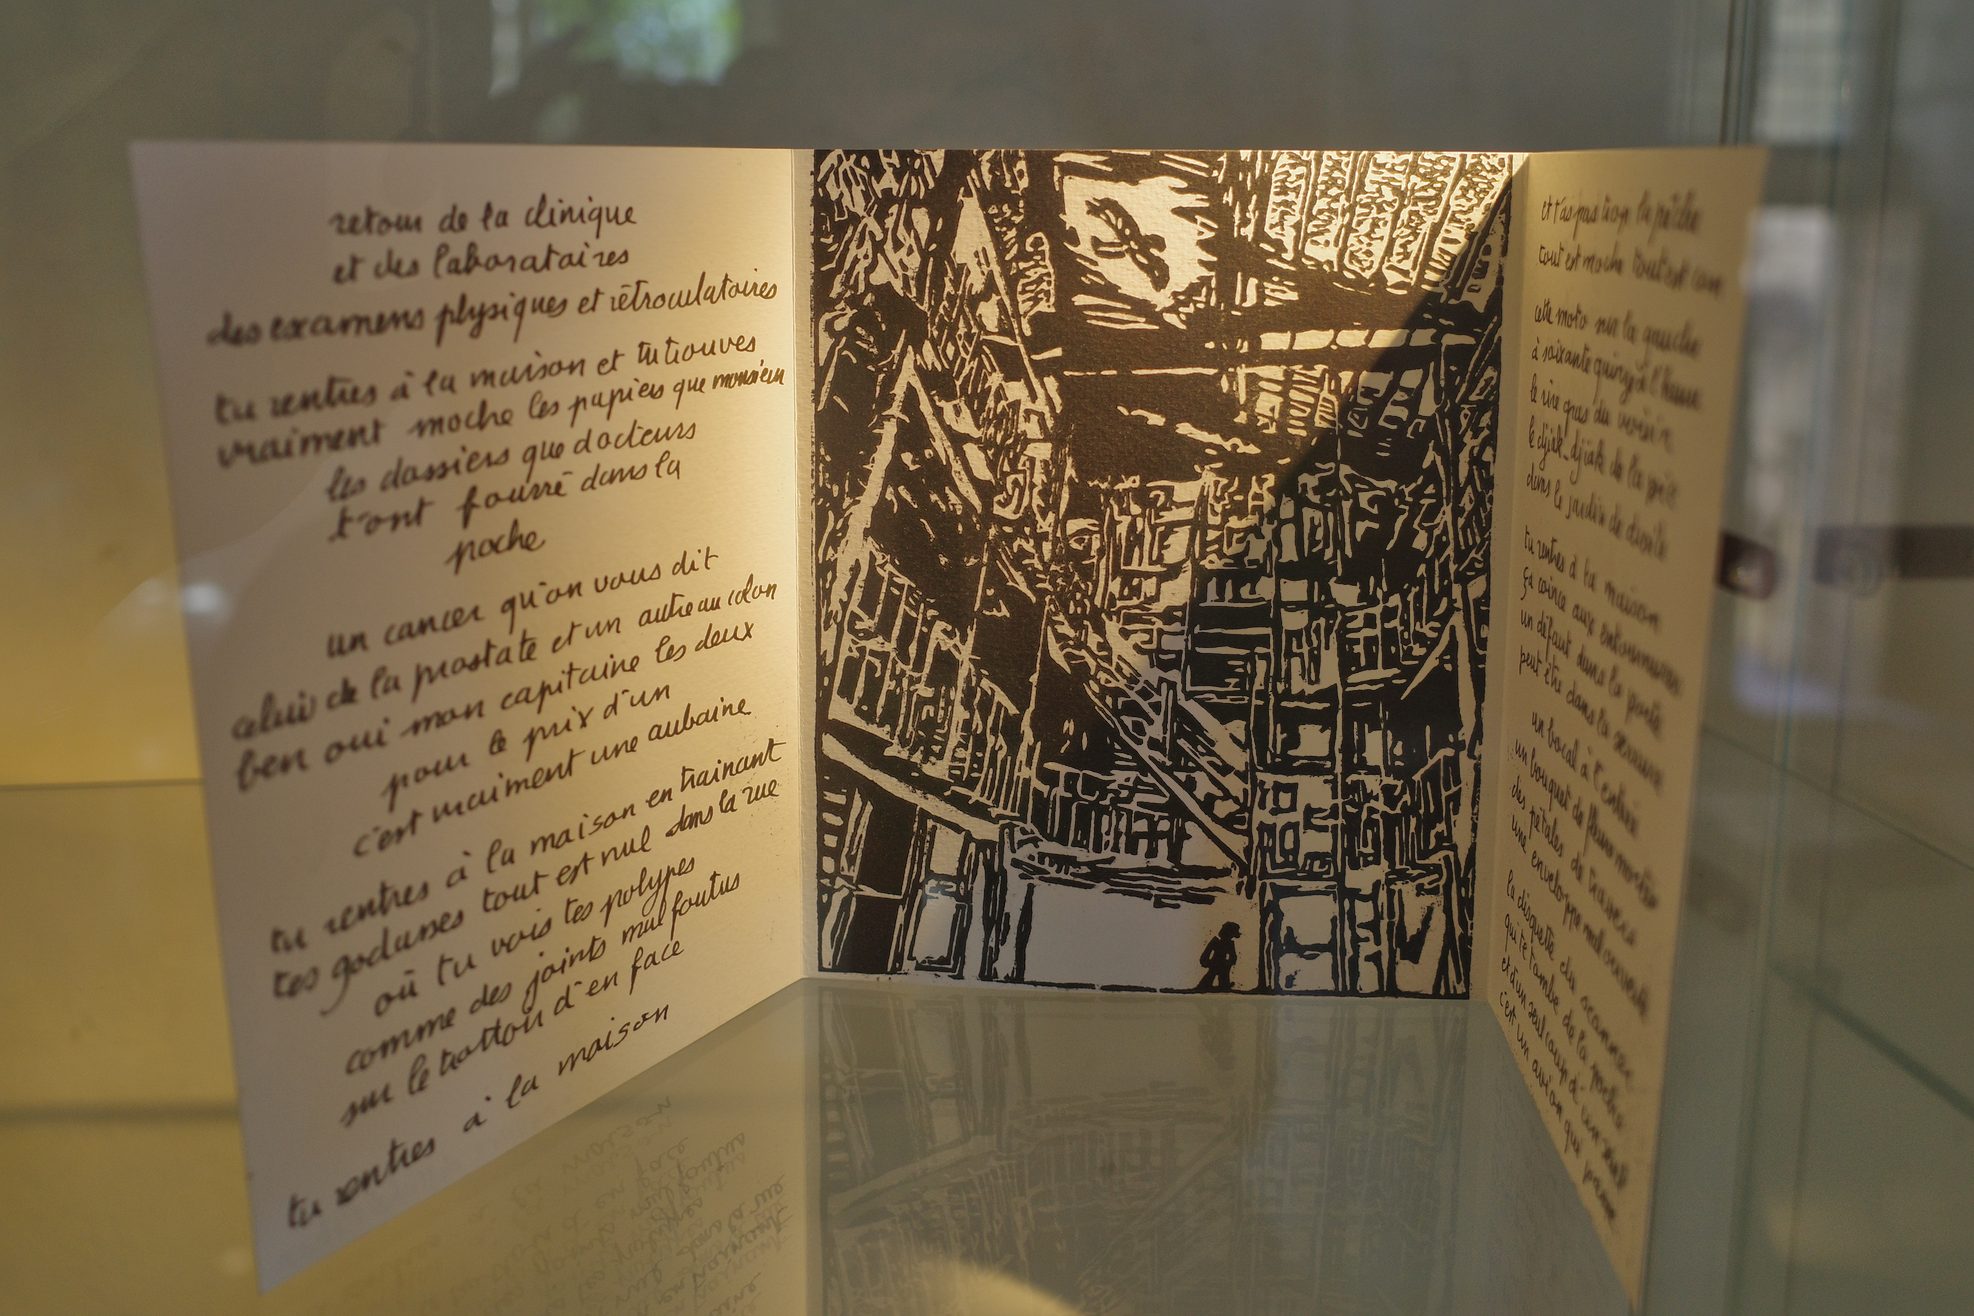 retour de la clinique
et des laborataires
des examens physiques et rétroculatoires
tu rentres à la maison et tu trouves
vraiment moche les papiers que monsieur
les dossiers que docteurs
t'ont fourré dans la
poche
un cancer qu'on vous dit
celui de la prostate et un autre au colon
ben oui mon capitaine les deux
pour le prix d'un
c'est vraiment une aubaine
tu rentres à la maison en trainant
tes godasses tout est nul dans la rue
où tu vois tes polypes
comme des joints mal foutus
sur le trottoir d'en face
tu rentres à la maison
et t'as pas trop la pêche
tout est moche tout est
cette moto sur la gauche
à soixante quinze à l'heure
le rire gras du voisin
le djick-djick de la pie
dans le jardin de droite
tu rentres à la maison
ça coince aux entournures
un défaut dans la porte
peut être dans la serrure
un bocal à l'entrée
un bouquet de fleurs mortes
des pétales de travers
une enveloppe mal ouverte
la disquette du scanner
qui te tombe de la poche
et d'un seul coup d'un seul
c'est un avion qui passe